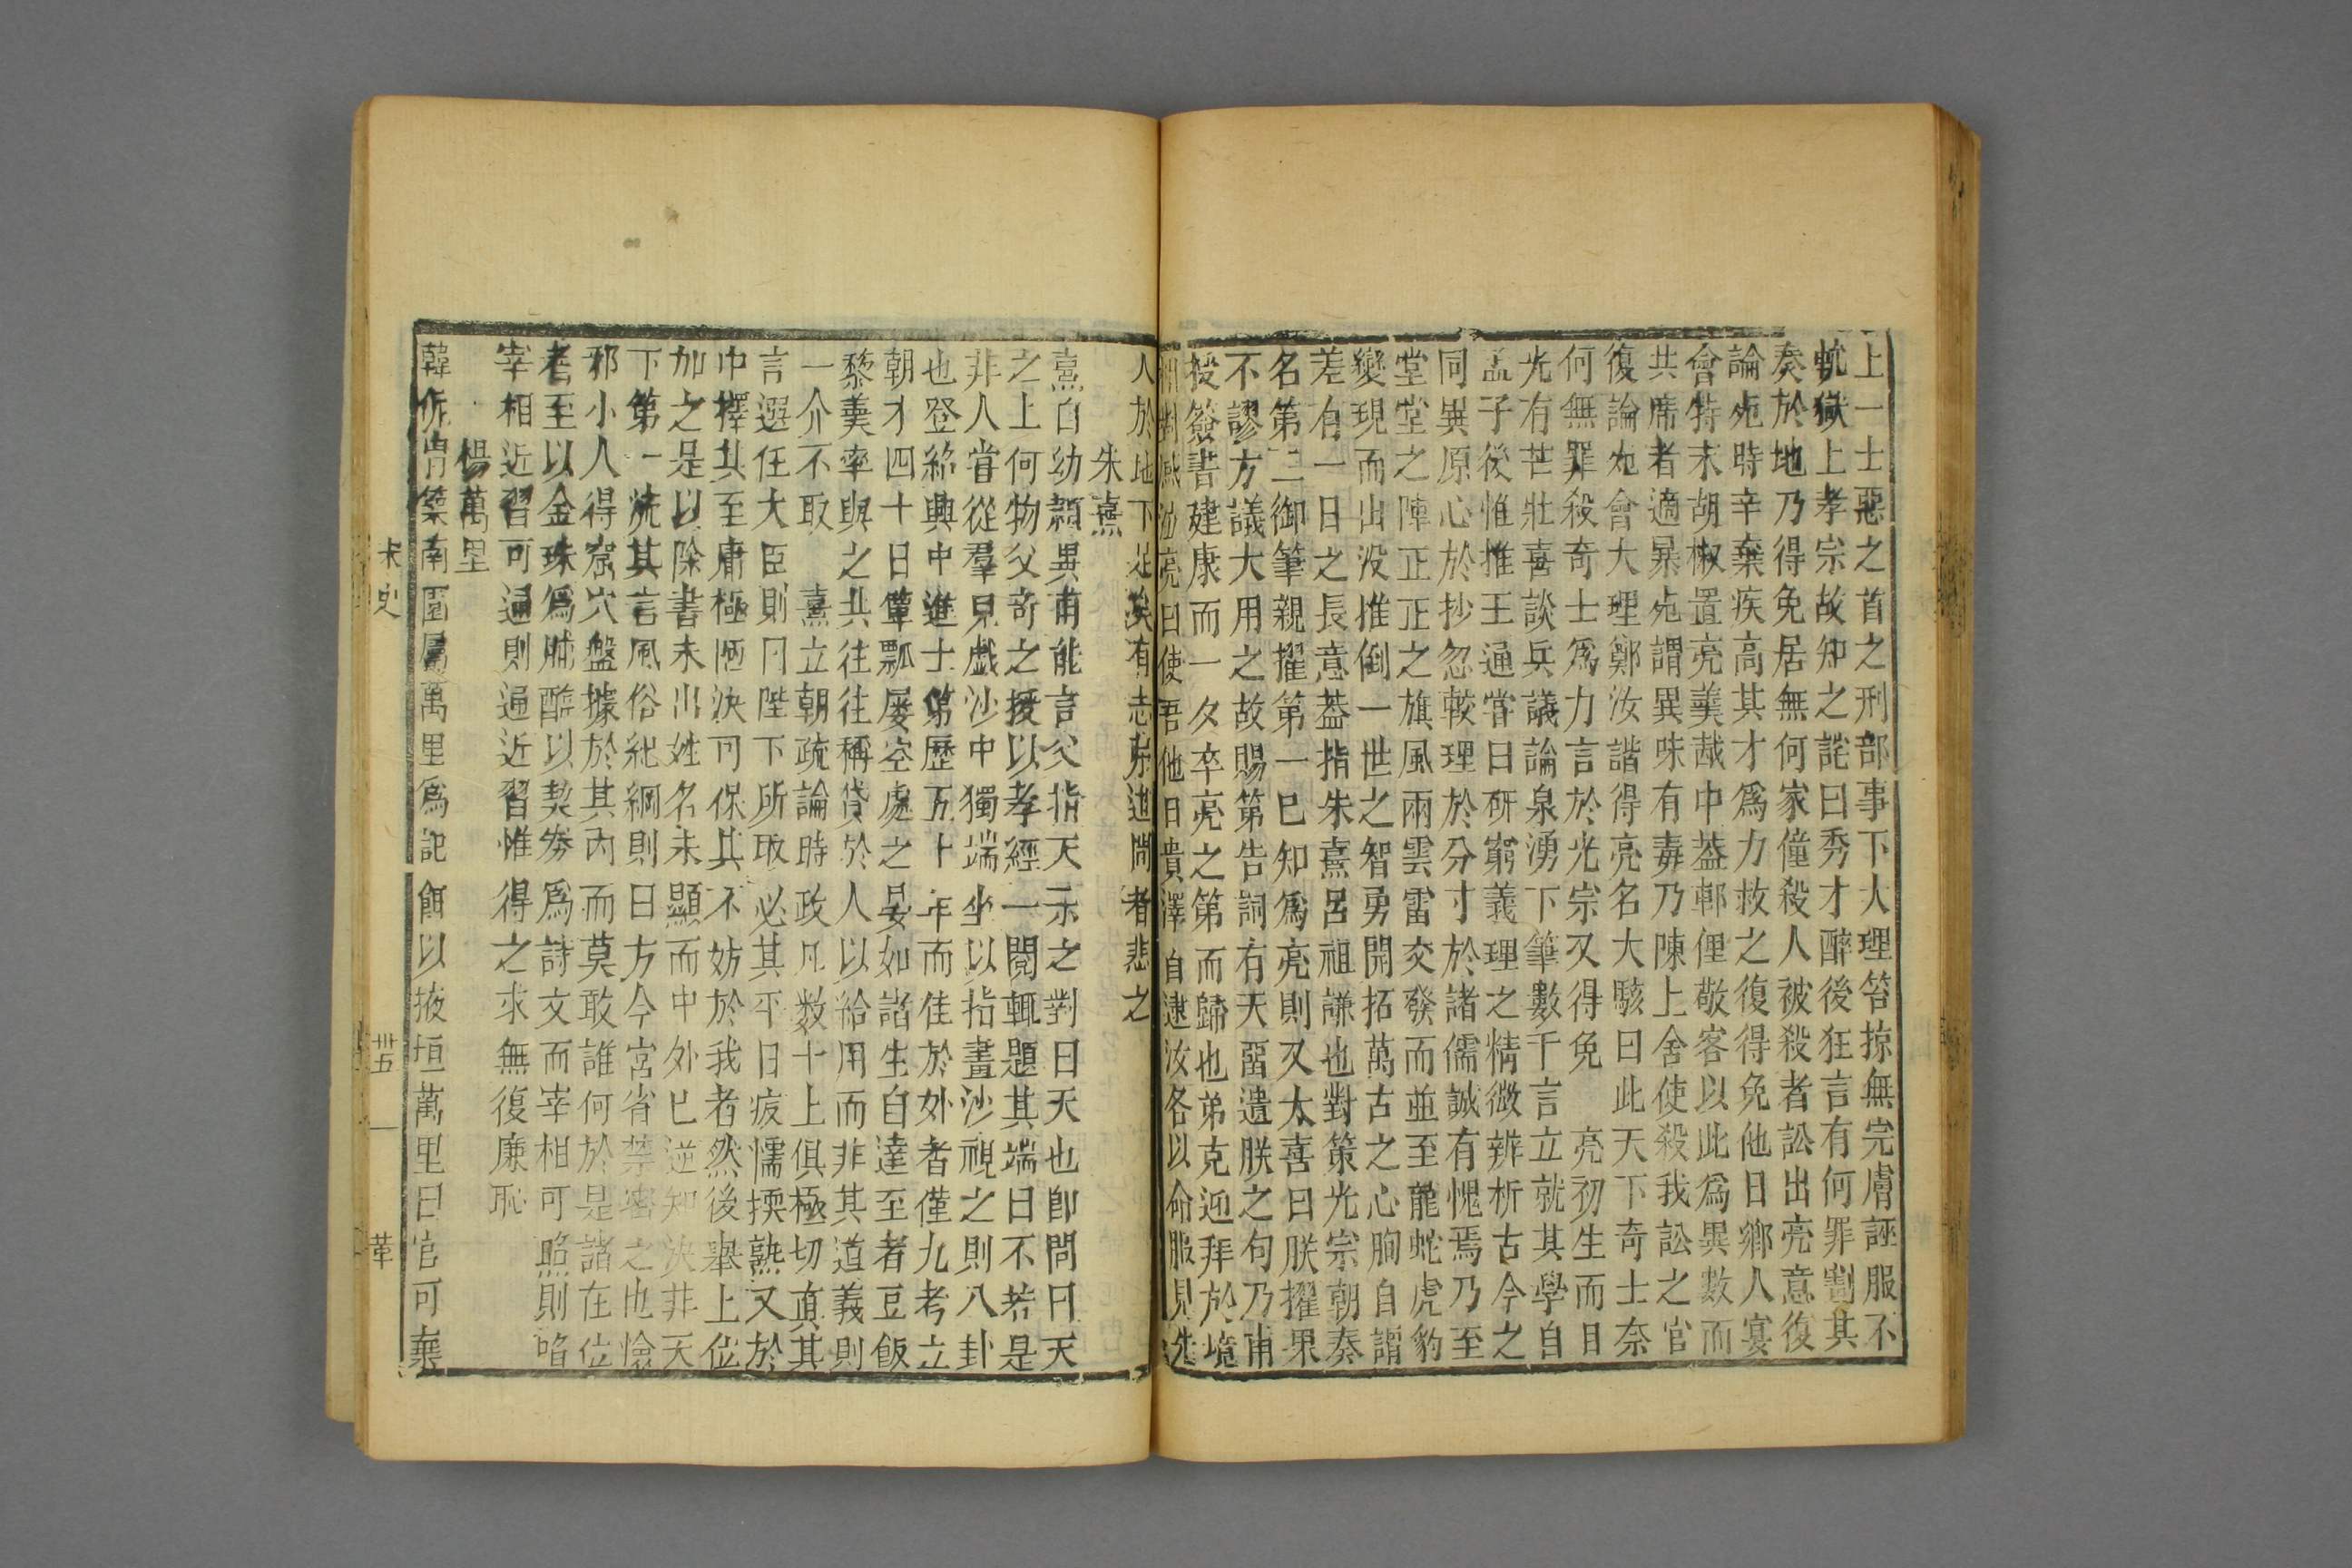 上一士惡之首之刑部事下大理笞掠無完膚誣服不
軌獄上孝宗故知之詫曰秀才醉後狂言有何罪劃其
奏於地乃得免居無何家僮殺人被殺者訟出亮意復
論死時辛棄疾高其才爲力救之復得免他日鄉人宴
會特末胡椒置亮羹胾中葢鄆俚敬客以此爲異數而
共席者適暴死謂異味有毒乃陳上舍使殺我訟之官
復論死會大理鄭汝諧得亮名大駭曰此天下奇士奈
何無罪殺奇士爲力言於光宗又得免　亮初生而目
光有芒壯喜談兵議論泉湧下筆數千言立就其學自
孟子後惟推王通嘗曰研窮義理之精微辨析古今之
同異原心於抄忽較理於分寸於諸儒誠有愧焉乃至
堂堂之陣正正之旗風雨雲雷交發而並至龍蛇虎豹
變現而出沒推倒一世之智勇開拓萬古之心胸自謂
差有一日之長意葢指朱熹呂祖謙也對策光宗朝奏
名第二御筆親擢第一已知爲亮則又大喜曰朕擢果
不謬方議大用之故賜第告詞有天留遺朕之句乃甫
授簽書建康而一夕卒亮之第而歸也弟克迎拜於境
相對感泣亮曰使吾他日貴澤自逮汝各以命服見先
人於地下足矣有志于進間者悲之
朱熹
熹自幼穎異甫能言父指天示之對曰天也卽問曰天
之上何物父奇之授以孝經一閱輒題其端曰不若是
非人嘗從羣兒戲沙中獨端坐以指畫沙視之則八卦
也登紹興中進士第歷五十年而仕於外者僅九考立
朝才四十日簞瓢屢空處之晏如諸生自達至者豆飯
藜羹率與之共往往稱貸於人以給用而非其道義則
一介不取　熹立朝疏論時政凡數十上俱極切直其
言選任大臣則曰陛下所取必其平日疲懦揉熟又於
中擇其至庸極陋決可保其不妨於我者然後舉上位
加之是以除書未出姓名未顯而中外已逆知決非天
下第一流其言風俗紀綱則曰方今宮省禁密之也憸
邪小人得窟穴盤據於其內而莫敢誰何於是諸在位
者至以金珠爲脯醢以契劵爲詩文而宰相可啗則啗
宰相近習可通則通近習惟得之求無復廉恥
楊萬里
韓侂冑築南園屬萬里爲記餌以掖垣萬里曰官可棄
宋史　卅五　一　革